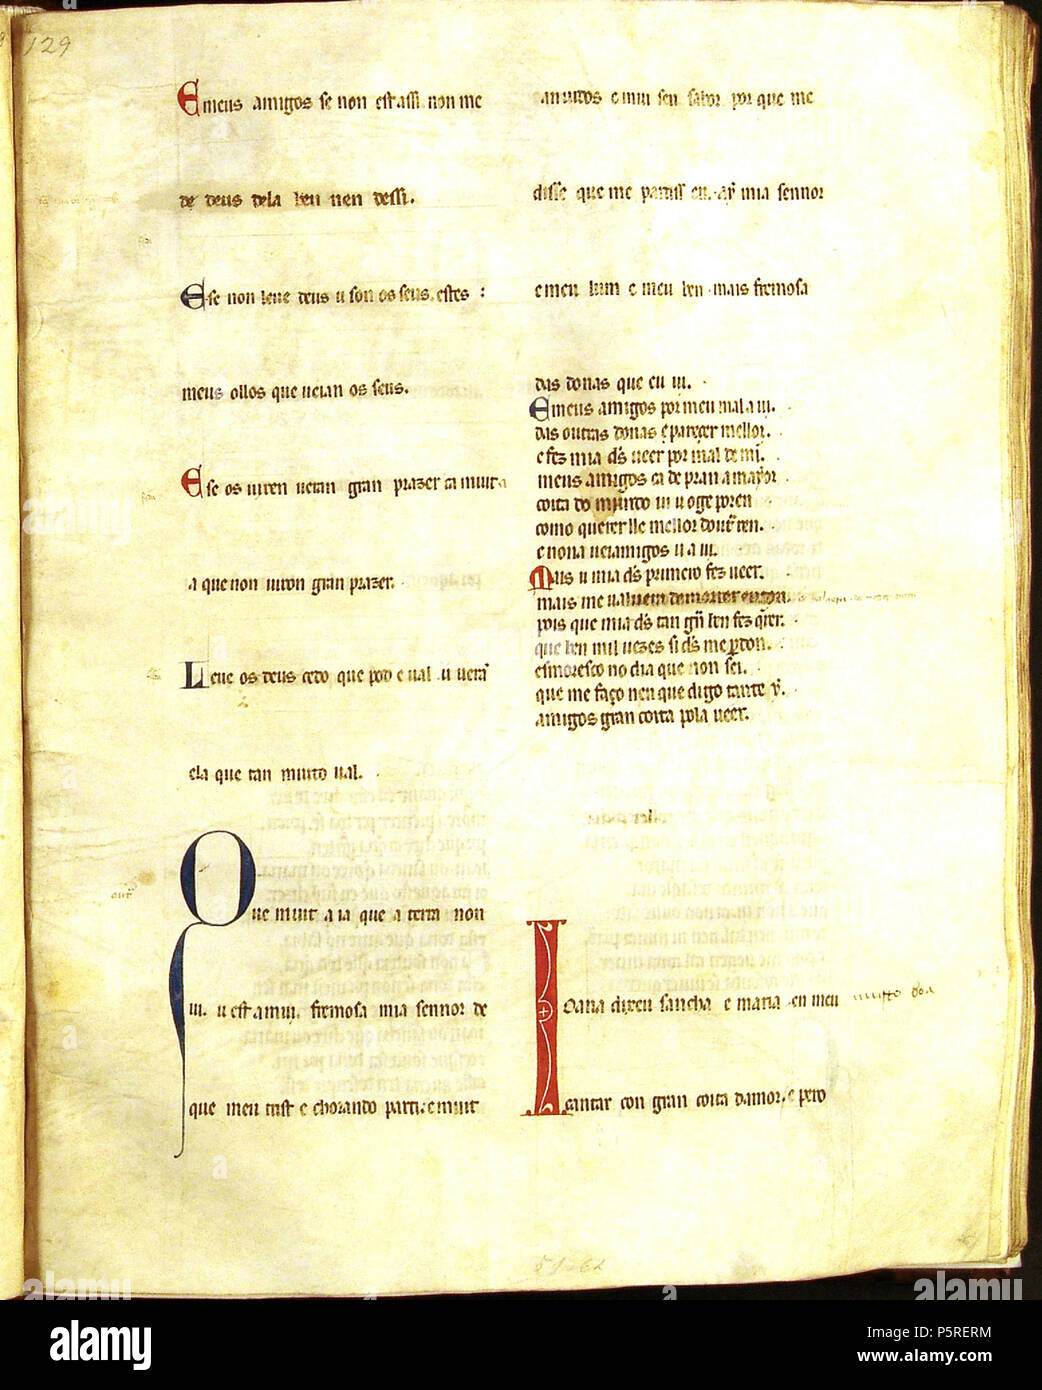 129
E meus amigos se non est assi non me
de deus dela ben nen dessi.
E se non leue deus u son os seus. estes :
meus ollos que ueian os seus.
E se os uiren ueran gran prazer ca muita
a que non uiron gran prazer.
Leue os deus cedo que pod e ual . u uerã
ela que tan muito ual.
Que muit a ia que a terra non
ui. u est a mui fremosa mia sennor de
que meu trist e chorando parti. e muit
amidos e miu seu sabor por que me
disse que me partiss en. ay mia sennor
e meu lum e meu ben . mais fremosa
das donas que eu ui.
E meus amigos por meu mal a ui.
das outras donas e parecer mellor.
e fez mia ds ueer por mal de mi.
meus amigos ca de pran a mayor
coita do mundo ui u oge poren
como querer lle mellor doutr ren.
e non a uei amigos u a ui.
Mais u mia ds primeiro fez ueer.
mais me ualuera de morrer enton.
pois que mia ds tan gñ ben fez qrer.
que ben mil uezes si ds me pdon.
esmoresco no dia que non sei.
que me faço nen que digo tante
amigos gran coita pola ueer.
Ioana dixeu sancha e maria en meu muyto
cantar con gran coita damor. e pero
51-62
alamy
Image ID: P5RERM
www.alamy.com